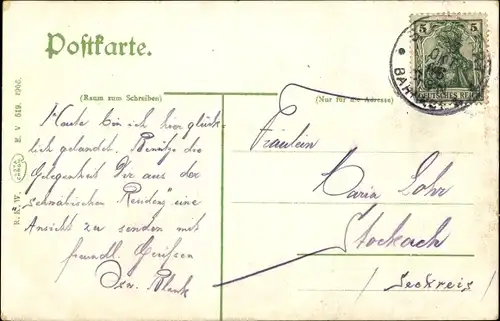 Postkarte.
(Raum zum Schreiben)
(Nur für die Adresse)
5 5
DEUTSCHES REICH
BAH
R. & W. E. V 519. 1905.
Heute bin ich hier glück-
lich gelandet. Benütze die
Gelegenheit Dir aus der
"schwäbischen Residenz" eine
Ansicht zu senden mit
freundl. Grüßen
Blank
Fräulein
Maria Lohr
Stockach
/Seekreis/